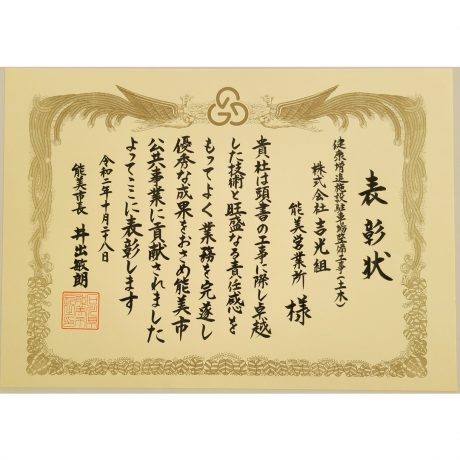 表彰状
健康増進施設駐車場整備工事(土木)
株式会社吉光組
能美営業所 様
貴社は頭書の工事に際し卓越
した技術と旺盛なる責任感を
もってよく業務を完遂し
優秀な成果をおさめ能美市
公共事業に貢献されました
よってここに表彰します
令和二年十月二十八日
能美市長 井出敏朗